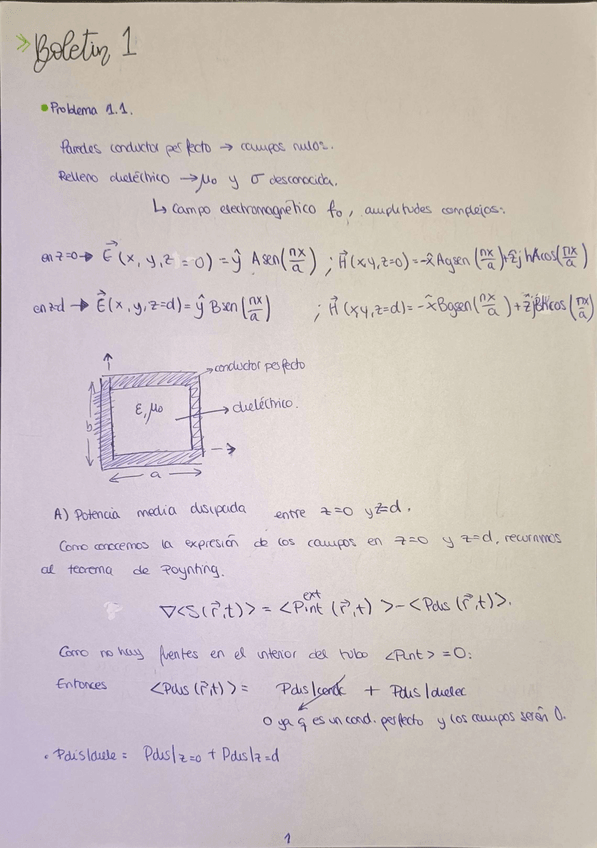 » Boletín 1
• Problema 1.1.
Paredes conductor perfecto → campos nulos.
Relleno dieléctrico → μ₀ y σ desconocida.
↳ Campo electromagnético f₀, amplitudes complejas:
en z=0 → E⃗(x, y, z = 0) = ŷ A sen(πx/a) ; H⃗(x,y, z=0) = -x̂ A g sen(πx/a) + ẑ j h A cos(πx/a)
en z=d → E⃗(x, y, z=d) = ŷ B sen(πx/a) ; H⃗(x,y, z=d) = -x̂ B g sen(πx/a) + ẑ j B h cos(πx/a)
→ conductor perfecto
ε, μ₀
→ dieléctrico.
b
a
A) Potencia media disipada entre z=0 y z=d.
Como conocemos la expresión de los campos en z=0 y z=d, recurrimos
al teorema de Poynting.
∇<S(r⃗,t)> = <Pint^ext (r⃗,t)> - <Pdis (r⃗,t)>.
Como no hay fuentes en el interior del tubo <Pint> = 0:
Entonces <Pdis (r⃗,t)> = Pdis|conde + Pdis|dielec
0 ya q es un cond. perfecto y los campos serán 0.
• Pdis|diele = Pdis|z=0 + Pdis|z=d
1